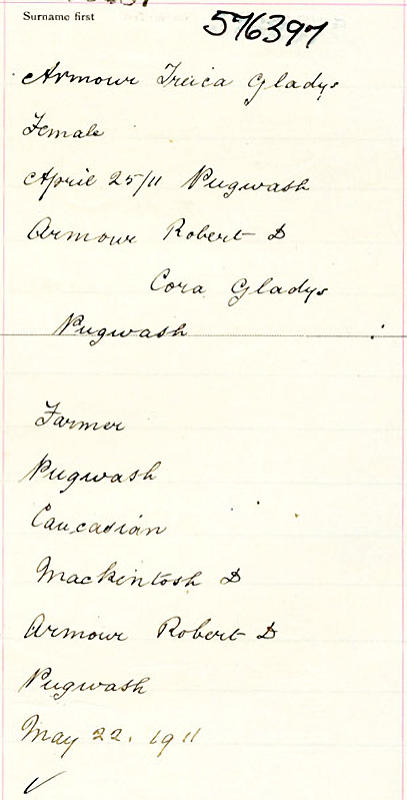 Surname first
576397
Armour Treica Gladys
Female
April 25/11 Pugwash
Armour Robert D
Cora Gladys
Pugwash
Farmer
Pugwash
Caucasian
Mackintosh D
Armour Robert D
Pugwash
May 22. 1911